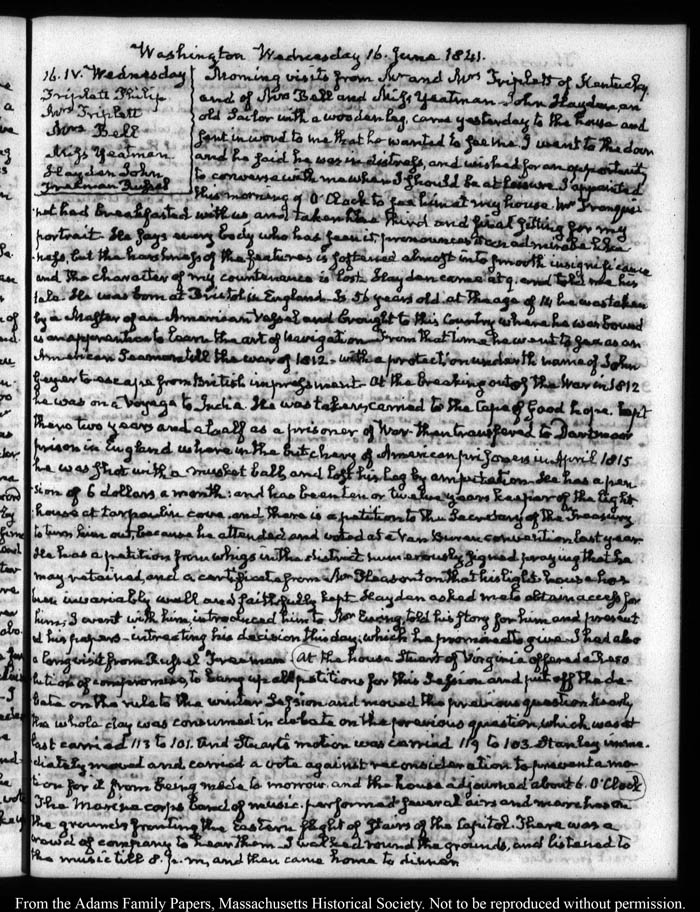 Washington Wednesday 16. June 1841.
16. IV. Wednesday
Triplett Philip
Mrs Triplett
Mrs Bell
Miss Yeatman
Hayden John
Freeman Russel
Morning visits from Mr and Mrs Triplett of Kentucky,
and of Mrs Bell and Miss Yeatman. John Hayden, an
old Sailor with a wooden leg, came yesterday to the house and
sent in word to me that he wanted to see me. I went to the door
and he said he was in distress, and wished for an opportunity
to converse with me when I should be at leisure. I appointed
this morning 9 O'Clock to see him at my house. Mr Franqui-
not had breakfasted with us, and taken the third and final sitting for my
portrait. He says every body who has seen it, pronounces it an admirable like-
ness, but the harshness of the features is softened almost into smooth insignificance
and the character of my countenance is lost. Hayden came at 9. and told me his
tale. He was born at Bristol in England. Is 51 years old. at the age of 14 he was taken
by a Master of an American Vessel and brought to this Country where he was bound
as an apprentice to learn the art of Navigation. From that time he went to sea as an
American Seaman till the war of 1812 - with a protection under the name of John
to escape from British impressment. At the breaking out of the War in 1812
he was on a Voyage to India. He was taken, carried to the Cape of Good hope. kept
there two years and a half as a prisoner of War. then transferred to Dartmoor
prison in England where in the butchery of American prisoners in April 1815
he was shot with a musket ball, and lost his leg by amputation. He has a pen-
sion of 6 dollars a month: and has been ten or twelve years keeper of the light
house at tarpaulin cove. and there is a petition to the Secretary of the Treasury
to turn him out, because he attended and voted at a Van Buren convention last year.
He has a petition from whigs in the district numerously signed praying that he
may retained, and a certificate from Mr Pleasonton that his light-house has
been invariably well and faithfully kept. Hayden asked me to obtain access for
him; I went with him, introduced him to Mr Ewing, told his story for him and present-
ed his papers - intreating his decision this day; which he promised to give. I had also
a long visit from Russel Freeman. At the house Stuart of Virginia offered a Reso-
lution of compromise, to hang up all petitions for this Session and put off the de-
bate on the rule to the winter Session. and moved the previous question. Nearly
the whole day was consumed in debate on the previous question, which was at
last carried 113 to 101. And Stuart's motion was carried 119 to 103. Stanley imme-
diately moved and carried a vote against reconsideration to prevent a mo-
tion for it from being made to morrow. and the house adjourned about 6. O'Clock
The Marine corps band of music performed several airs and marches on
the grounds fronting the Eastern flight of Stairs of the Capitol. There was a
crowd of company to hear them. I walked round the grounds, and listened to
the music till 8. p.m, and then came home to dinner.
From the Adams Family Papers, Massachusetts Historical Society. Not to be reproduced without permission.